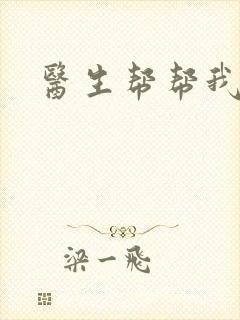 醫生帮帮我
梁一飛